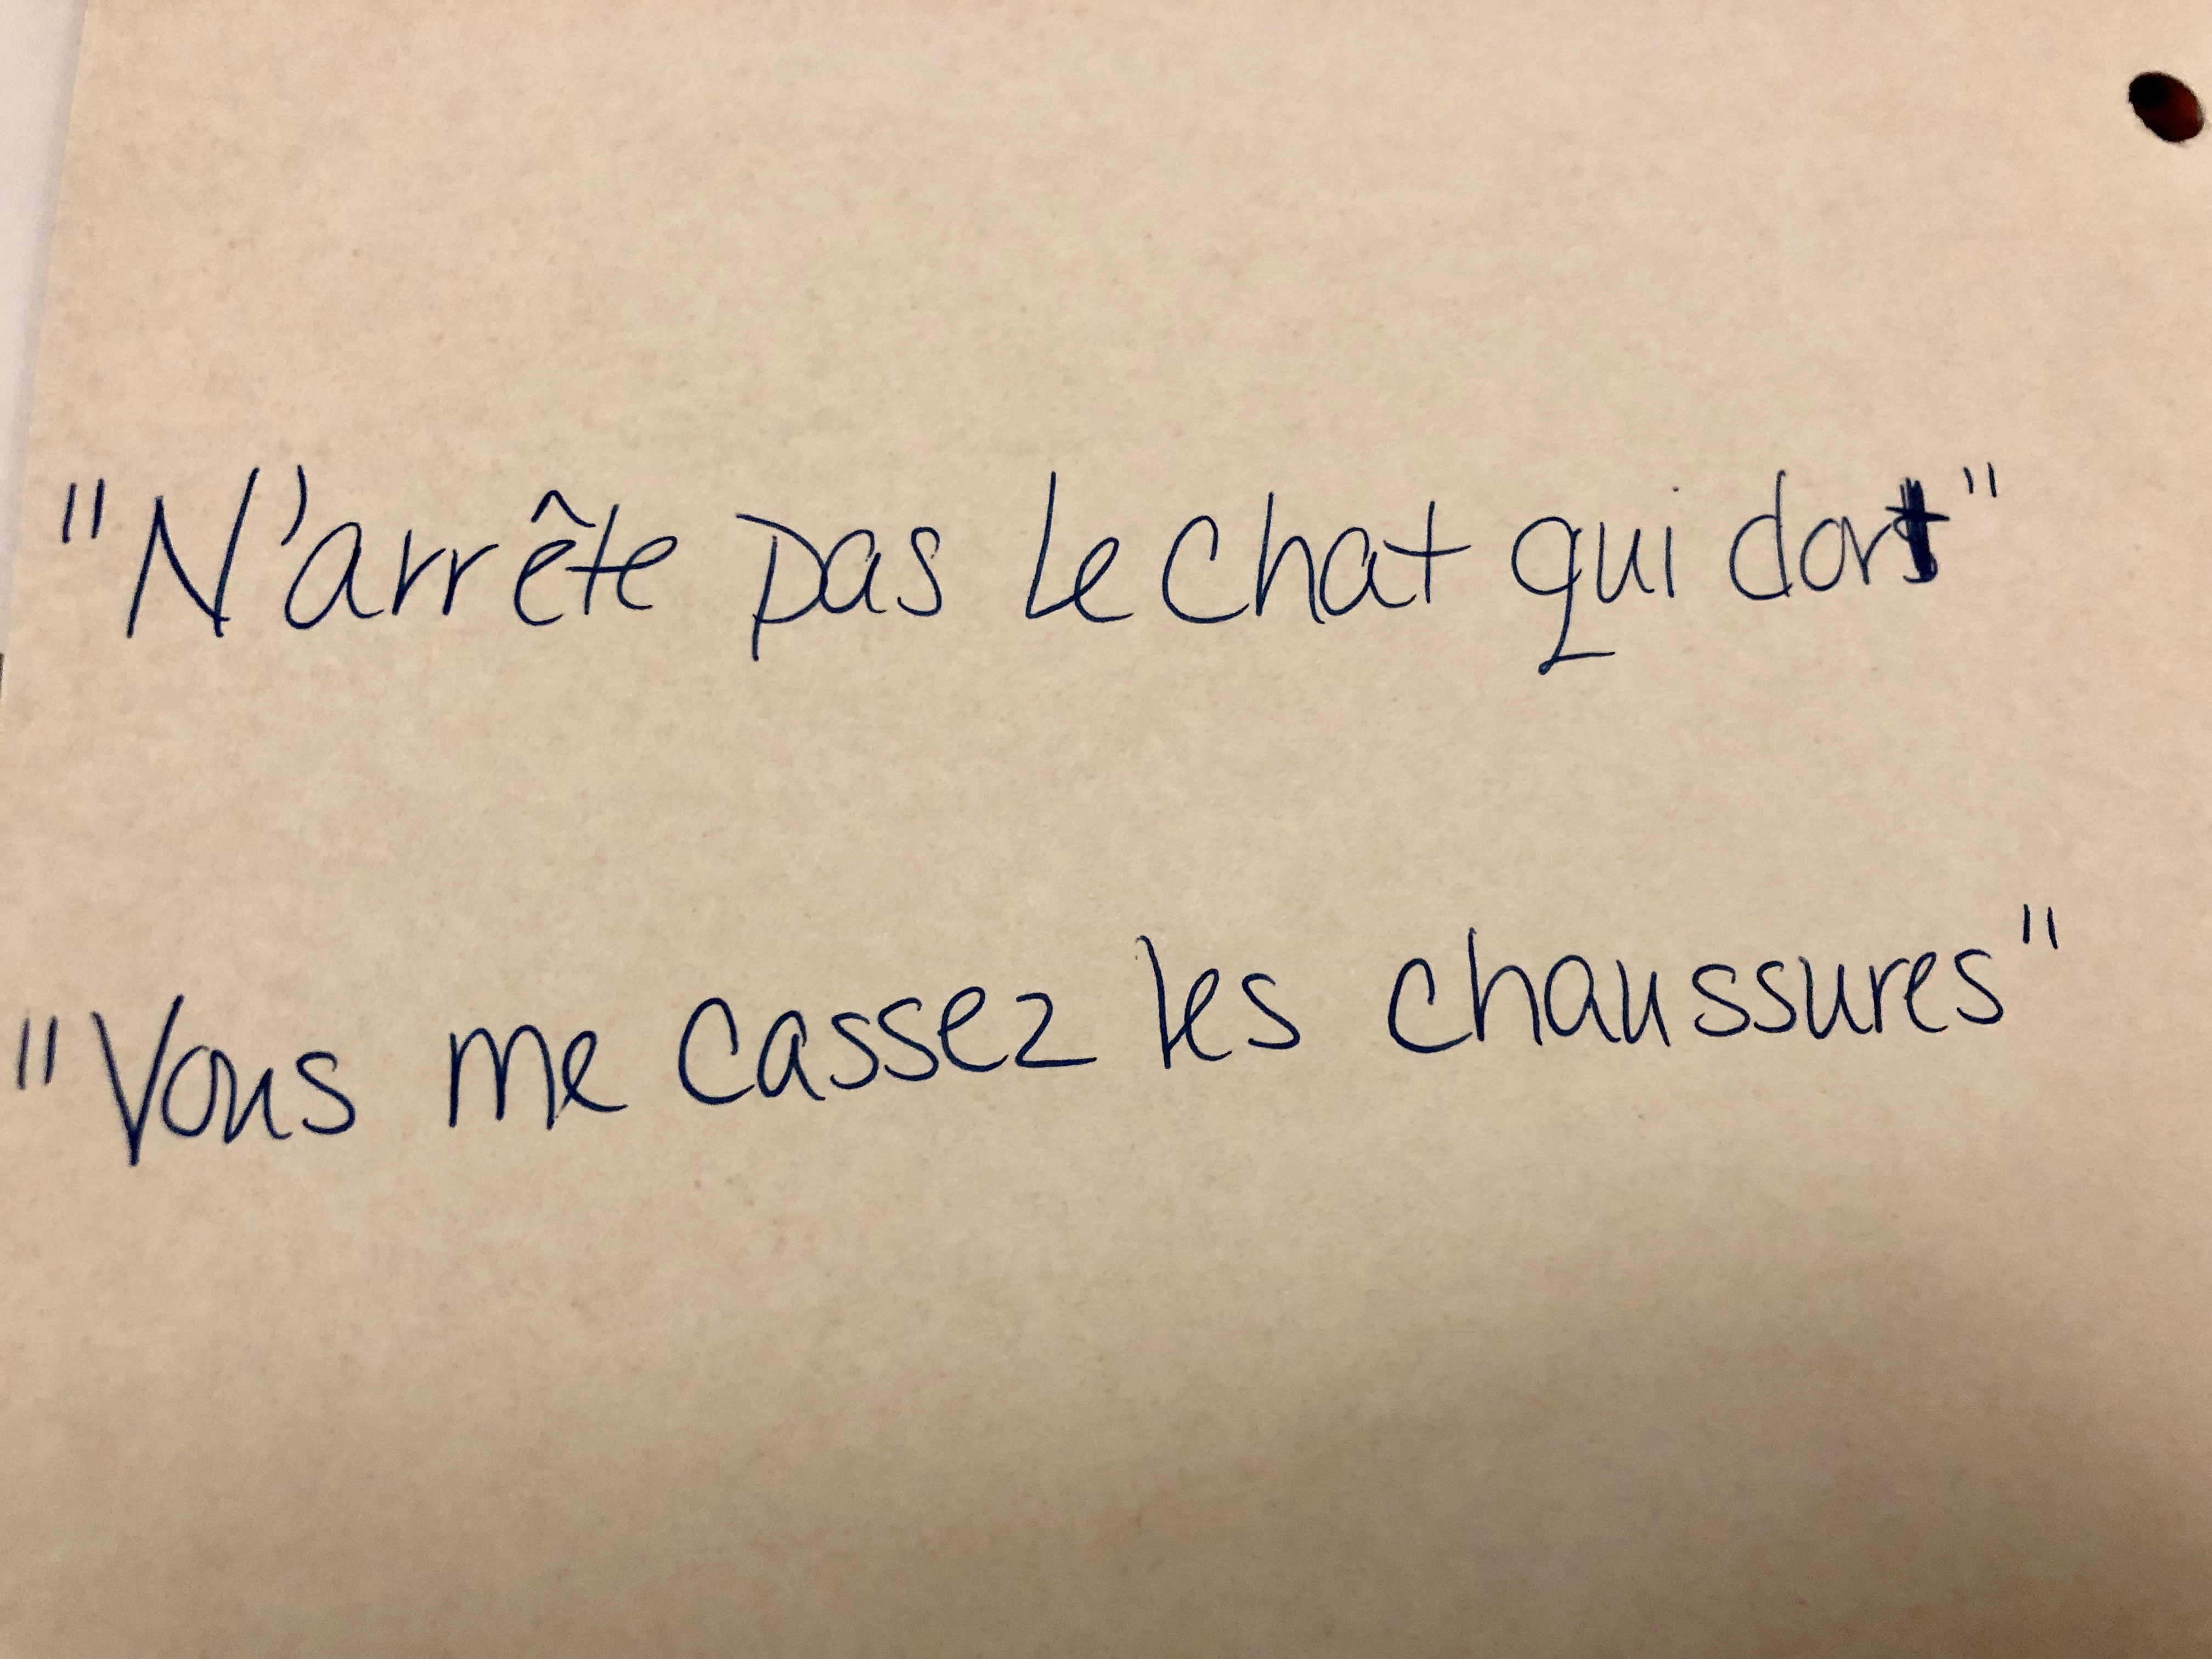 "N'arrête pas le chat qui dort"
"Vous me cassez les chaussures"